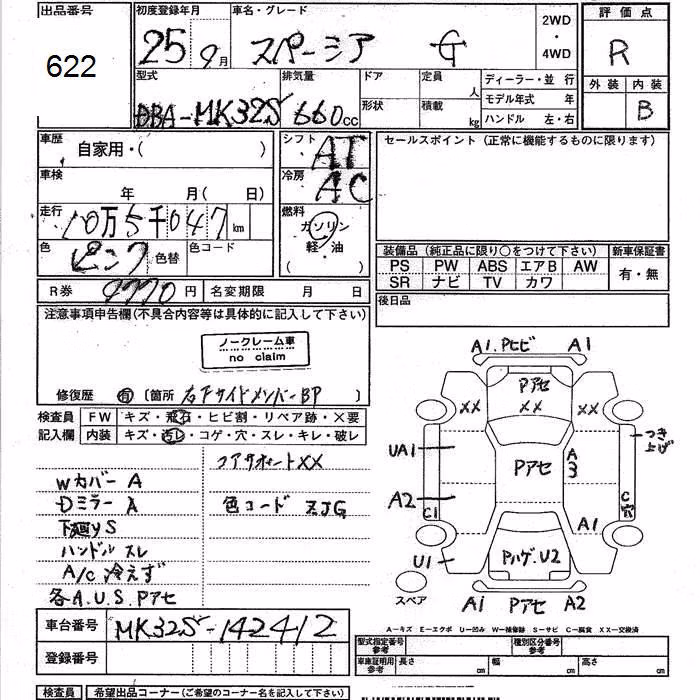 出品番号
622
初度登録年月
25 9月
車名・グレード
スペーシア G
2WD
・
4WD
評価点
R
外装 内装
B
型式
DBA-MK32S
排気量
660cc
ドア
形状
定員
人
積載
kg
ディーラー・並行
モデル年式 年
ハンドル 左・右
車歴
自家用・( )
車検
年 月( 日)
走行
10万5千047km
色
ピンク
色替
色コード
シフト
AT
冷房
AC
燃料
ガソリン
軽・油
( )
セールスポイント(正常に機能するものに限ります)
装備品(純正品に限り○をつけて下さい)
PS PW ABS エアB AW
SR ナビ TV カワ
新車保証書
有・無
R券 9770円
名変期限 月 日
後日品
注意事項申告欄(不具合内容等は具体的に記入して下さい)
ノークレーム車
no claim
修復歴 有 〔箇所 右Fサイドメンバー BP 〕
検査員
記入欄
FW キズ・飛石・ヒビ割・リペア跡・X要
内装 キズ・汚レ・コゲ・穴・スレ・キレ・破レ
コアサポートXX
Wカバー A
Dミラー A
色コード ZJG
下廻りS
ハンドル スレ
A/C 冷えず
各A.U.S.Pアセ
A1.Pヒビ A1
Pアセ
XX XX XX
つき上げ
UA1
Pアセ
A3
A2
C1
C穴
A1
U1
Pハゲ.U2
スペア
A1 Pアセ A2
A－キズ E－エクボ U－凹み W－補修跡 S－サビ C－腐食 XX－交換済
車台番号
MK32S-142412
登録番号
型式指定番号
参考
種別区分番号
参考
車庫証明用
参考
長さ cm
幅 cm
高さ cm
検査員
希望出品コーナー(ご希望のコーナー名を記入して下さい)